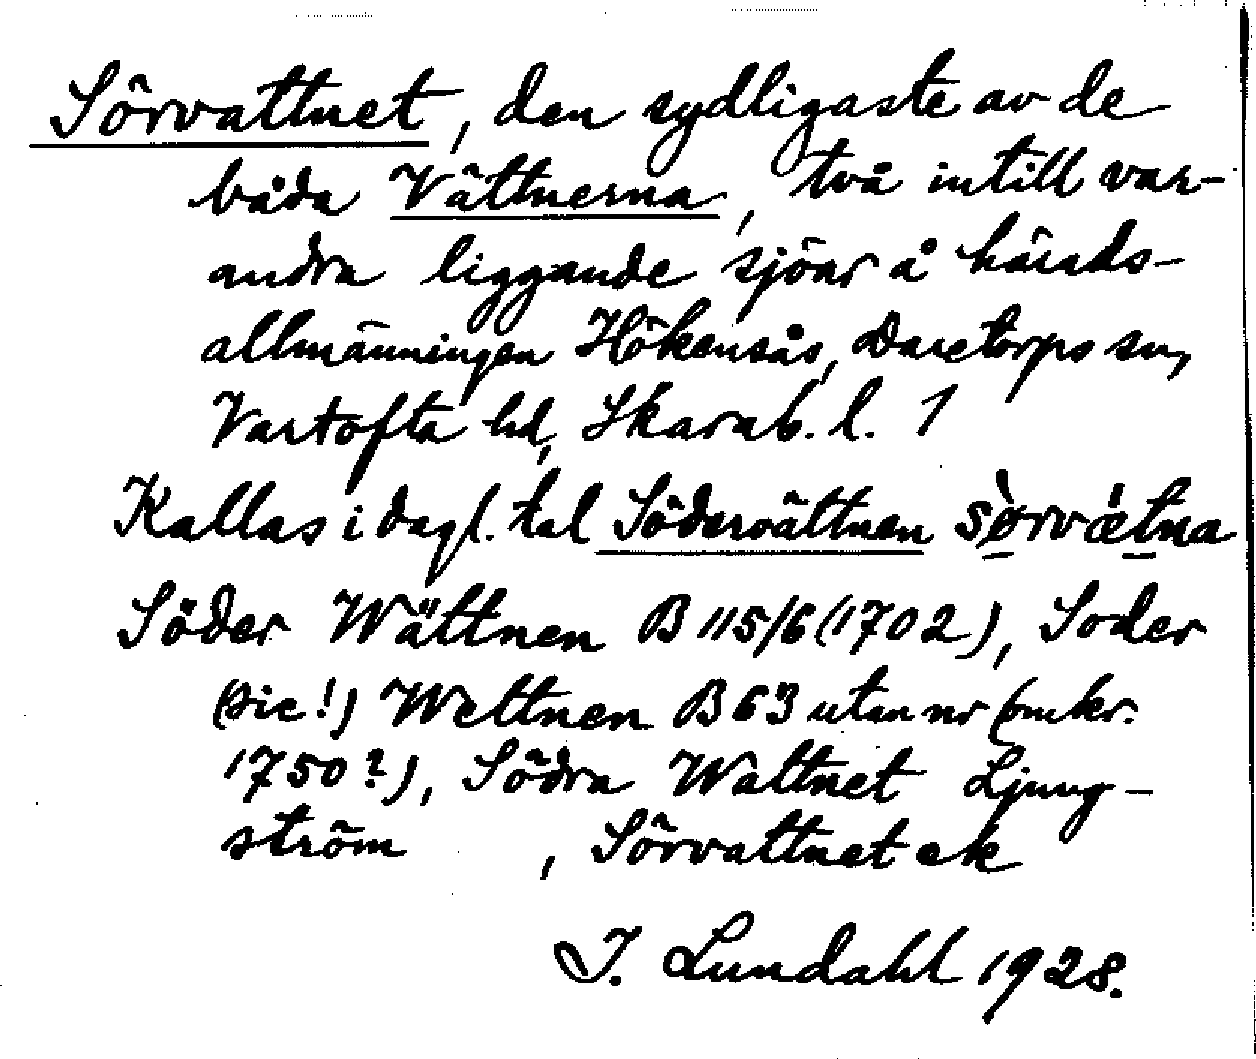 Sörvattnet, den sydligaste av de
båda Vättnerna, två intill var-
andra liggande sjöar å härads-
allmänningen Hökensås, Daretorps sn,
Vartofta hd, Skarab. l. 1
Kallas i dagl. tal Södervättnen sø̀rvǽtna
Söder Wättnen B 115/6 (1702), Soder
(sic!) Wettnen B 63 utan nr (omkr.
1750?), Södra Wattnet Ljung-
ström , Sörvattnet ek
I. Lundahl 1928.